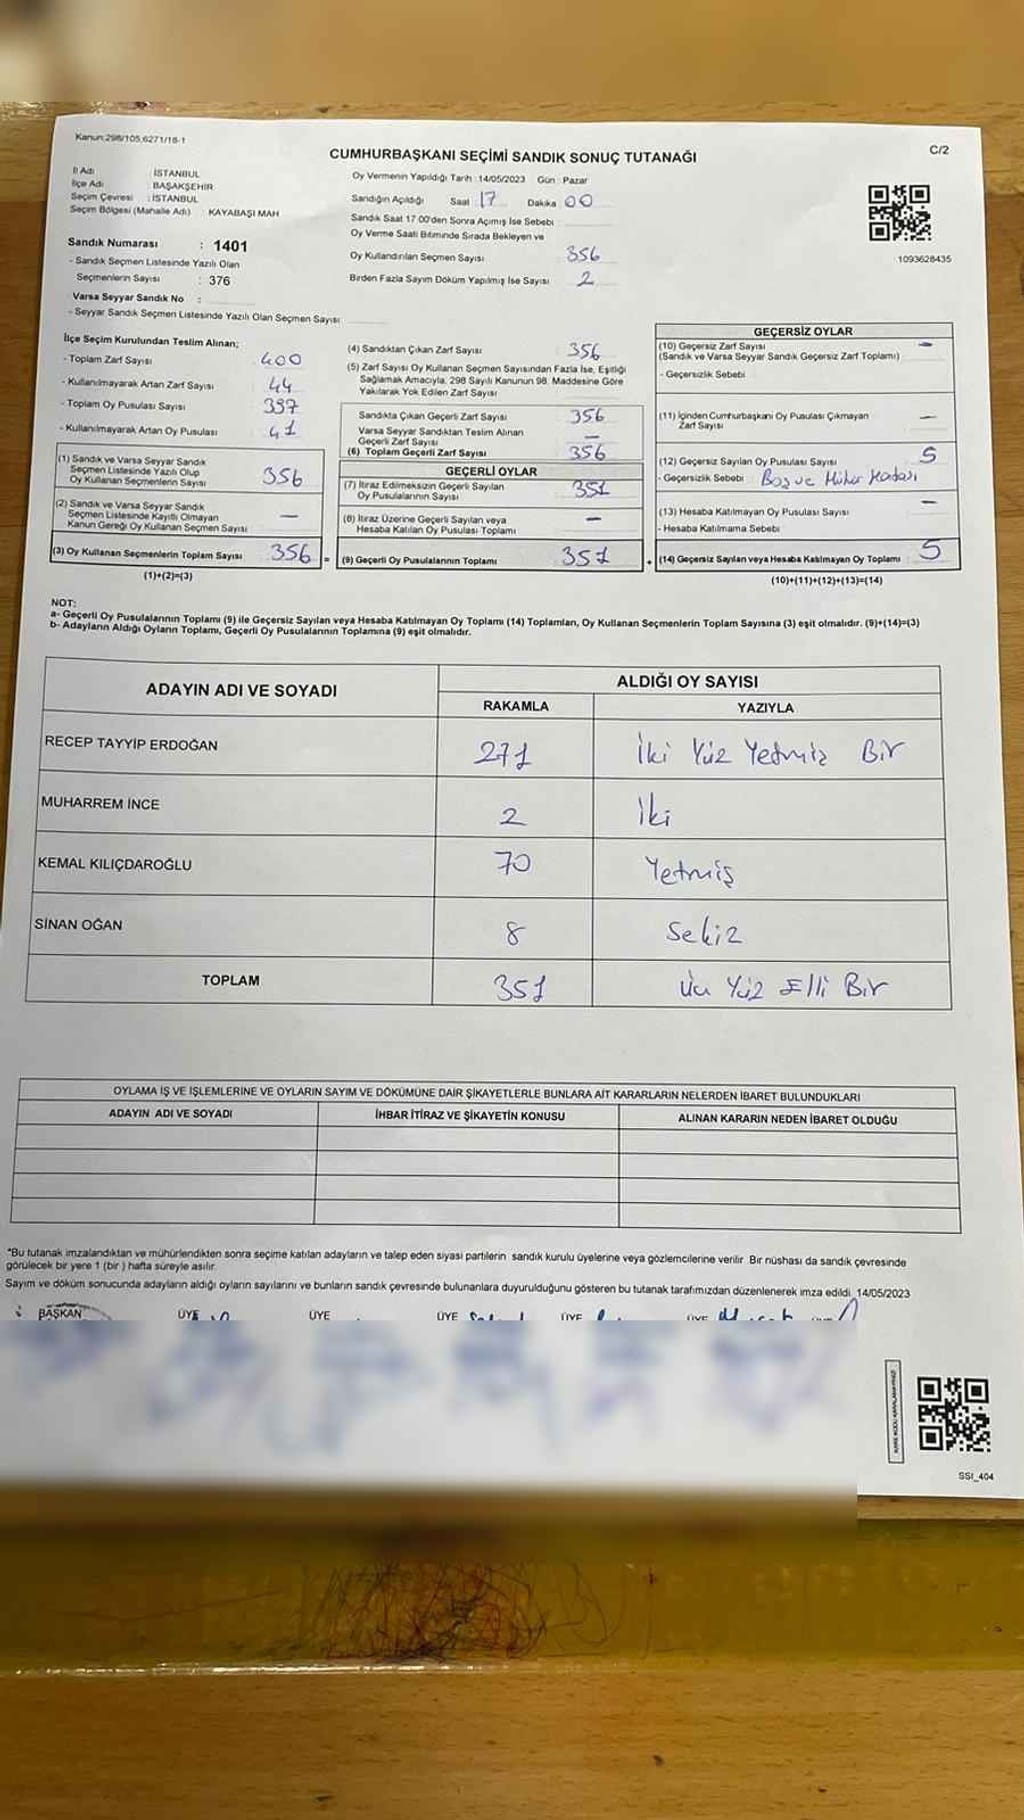 Kanun:298/105,6271/16-1
CUMHURBAŞKANI SEÇİMİ SANDIK SONUÇ TUTANAĞI
C/2
İl Adı : İSTANBUL
İlçe Adı : BAŞAKŞEHİR
Seçim Çevresi : İSTANBUL
Seçim Bölgesi (Mahalle Adı) : KAYABAŞI MAH
Sandık Numarası : 1401
- Sandık Seçmen Listesinde Yazılı Olan
Seçmenlerin Sayısı : 376
Varsa Seyyar Sandık No :
- Seyyar Sandık Seçmen Listesinde Yazılı Olan Seçmen Sayısı
Oy Vermenin Yapıldığı Tarih :14/05/2023 Gün : Pazar
Sandığın Açıldığı Saat 17 Dakika 00
Sandık Saat 17:00'den Sonra Açılmış İse Sebebi
Oy Verme Saati Bitiminde Sırada Bekleyen ve
Oy Kullandırılan Seçmen Sayısı 356
Birden Fazla Sayım Döküm Yapılmış İse Sayısı 2
1093628435
İlçe Seçim Kurulundan Teslim Alınan;
- Toplam Zarf Sayısı 400
- Kullanılmayarak Artan Zarf Sayısı 44
- Toplam Oy Pusulası Sayısı 397
- Kullanılmayarak Artan Oy Pusulası 41
(1) Sandık ve Varsa Seyyar Sandık
Seçmen Listesinde Yazılı Olup
Oy Kullanan Seçmenlerin Sayısı 356
(2) Sandık ve Varsa Seyyar Sandık
Seçmen Listesinde Kayıtlı Olmayan
Kanun Gereği Oy Kullanan Seçmen Sayısı —
(3) Oy Kullanan Seçmenlerin Toplam Sayısı 356 =
(1)+(2)=(3)
(4) Sandıktan Çıkan Zarf Sayısı 356
(5) Zarf Sayısı Oy Kullanan Seçmen Sayısından Fazla İse, Eşitliği
Sağlamak Amacıyla, 298 Sayılı Kanunun 98. Maddesine Göre
Yakılarak Yok Edilen Zarf Sayısı
Sandıkta Çıkan Geçerli Zarf Sayısı 356
Varsa Seyyar Sandıktan Teslim Alınan
Geçerli Zarf Sayısı —
(6) Toplam Geçerli Zarf Sayısı 356
GEÇERLİ OYLAR
(7) İtiraz Edilmeksizin Geçerli Sayılan
Oy Pusulalarının Sayısı 351
(8) İtiraz Üzerine Geçerli Sayılan veya
Hesaba Katılan Oy Pusulası Toplamı —
(9) Geçerli Oy Pusulalarının Toplamı 351 +
GEÇERSİZ OYLAR
(10) Geçersiz Zarf Sayısı —
(Sandık ve Varsa Seyyar Sandık Geçersiz Zarf Toplamı)
- Geçersizlik Sebebi
(11) İçinden Cumhurbaşkanı Oy Pusulası Çıkmayan
Zarf Sayısı —
(12) Geçersiz Sayılan Oy Pusulası Sayısı 5
- Geçersizlik Sebebi Boş ve Mühür Hatası
(13) Hesaba Katılmayan Oy Pusulası Sayısı —
- Hesaba Katılmama Sebebi
(14) Geçersiz Sayılan veya Hesaba Katılmayan Oy Toplamı 5
(10)+(11)+(12)+(13)=(14)
NOT:
a- Geçerli Oy Pusulalarının Toplamı (9) ile Geçersiz Sayılan veya Hesaba Katılmayan Oy Toplamı (14) Toplamları, Oy Kullanan Seçmenlerin Toplam Sayısına (3) eşit olmalıdır. (9)+(14)=(3)
b- Adayların Aldığı Oyların Toplamı, Geçerli Oy Pusulalarının Toplamına (9) eşit olmalıdır.
ADAYIN ADI VE SOYADI
ALDIĞI OY SAYISI
RAKAMLA YAZIYLA
RECEP TAYYİP ERDOĞAN 271 İki Yüz Yetmiş Bir
MUHARREM İNCE 2 İki
KEMAL KILIÇDAROĞLU 70 Yetmiş
SİNAN OĞAN 8 Sekiz
TOPLAM 351 Üç Yüz Elli Bir
OYLAMA İŞ VE İŞLEMLERİNE VE OYLARIN SAYIM VE DÖKÜMÜNE DAİR ŞİKAYETLERLE BUNLARA AİT KARARLARIN NELERDEN İBARET BULUNDUKLARI
ADAYIN ADI VE SOYADI İHBAR İTİRAZ VE ŞİKAYETİN KONUSU ALINAN KARARIN NEDEN İBARET OLDUĞU
*Bu tutanak imzalandıktan ve mühürlendikten sonra seçime katılan adayların ve talep eden siyasi partilerin sandık kurulu üyelerine veya gözlemcilerine verilir. Bir nüshası da sandık çevresinde
görülecek bir yere 1 (bir) hafta süreyle asılır.
Sayım ve döküm sonucunda adayların aldığı oyların sayılarını ve bunların sandık çevresinde bulunanlara duyurulduğunu gösteren bu tutanak tarafımızdan düzenlenerek imza edildi. 14/05/2023
BAŞKAN ÜYE ÜYE ÜYE ÜYE ÜYE
SSI_404